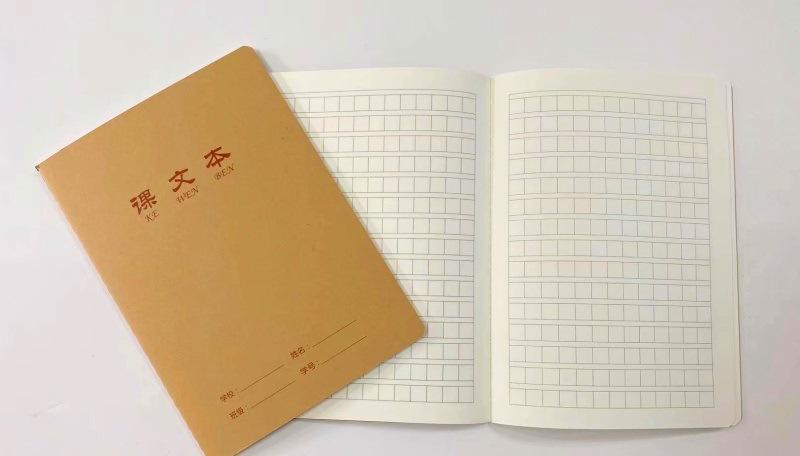 课文本
KE WEN BEN
学校: 姓名:
班级: 学号: